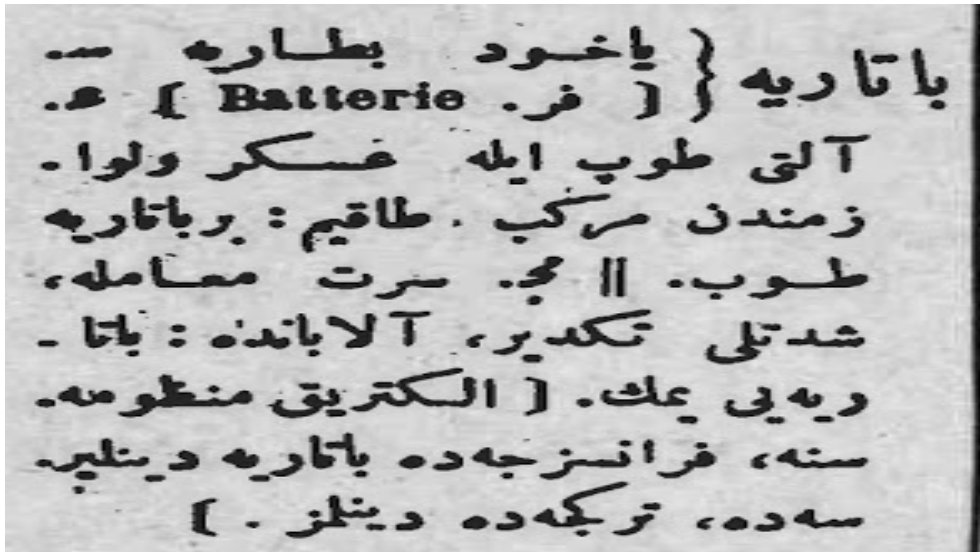 باتاریه { یاخود بطاریه —.
[ فر. Batterie ] عـ.
آلتی طوپ ایله عسکر ولوا.
زمندن مرکب . طاقیم : بر باتاریه
طوب. || مج. سرت معامله،
شدتلی تکدیر، آلاباندە : باتا -
ریه یی یمك. [ الکتریق منظومه.
سنه، فرانسزجه ده باتاریه دینلیر.
سه ده، ترکجه ده دینلمز . ]